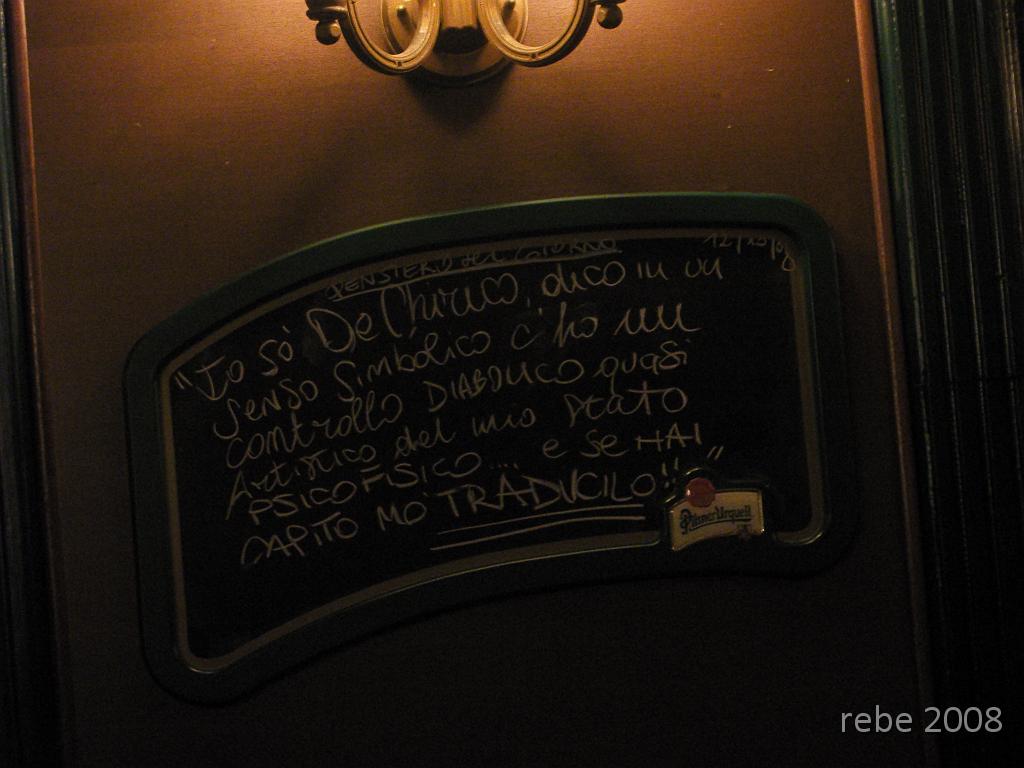 PENSIERO del GIORNO
12/10/08
"Io so' De Chirico, dico in un
senso simbolico c'ho un
controllo DIABOLICO quasi
Artistico del mio stato
PSICOFISICO... e se HAI
CAPITO MO' TRADUCILO!!"
Pilsner Urquell
rebe 2008